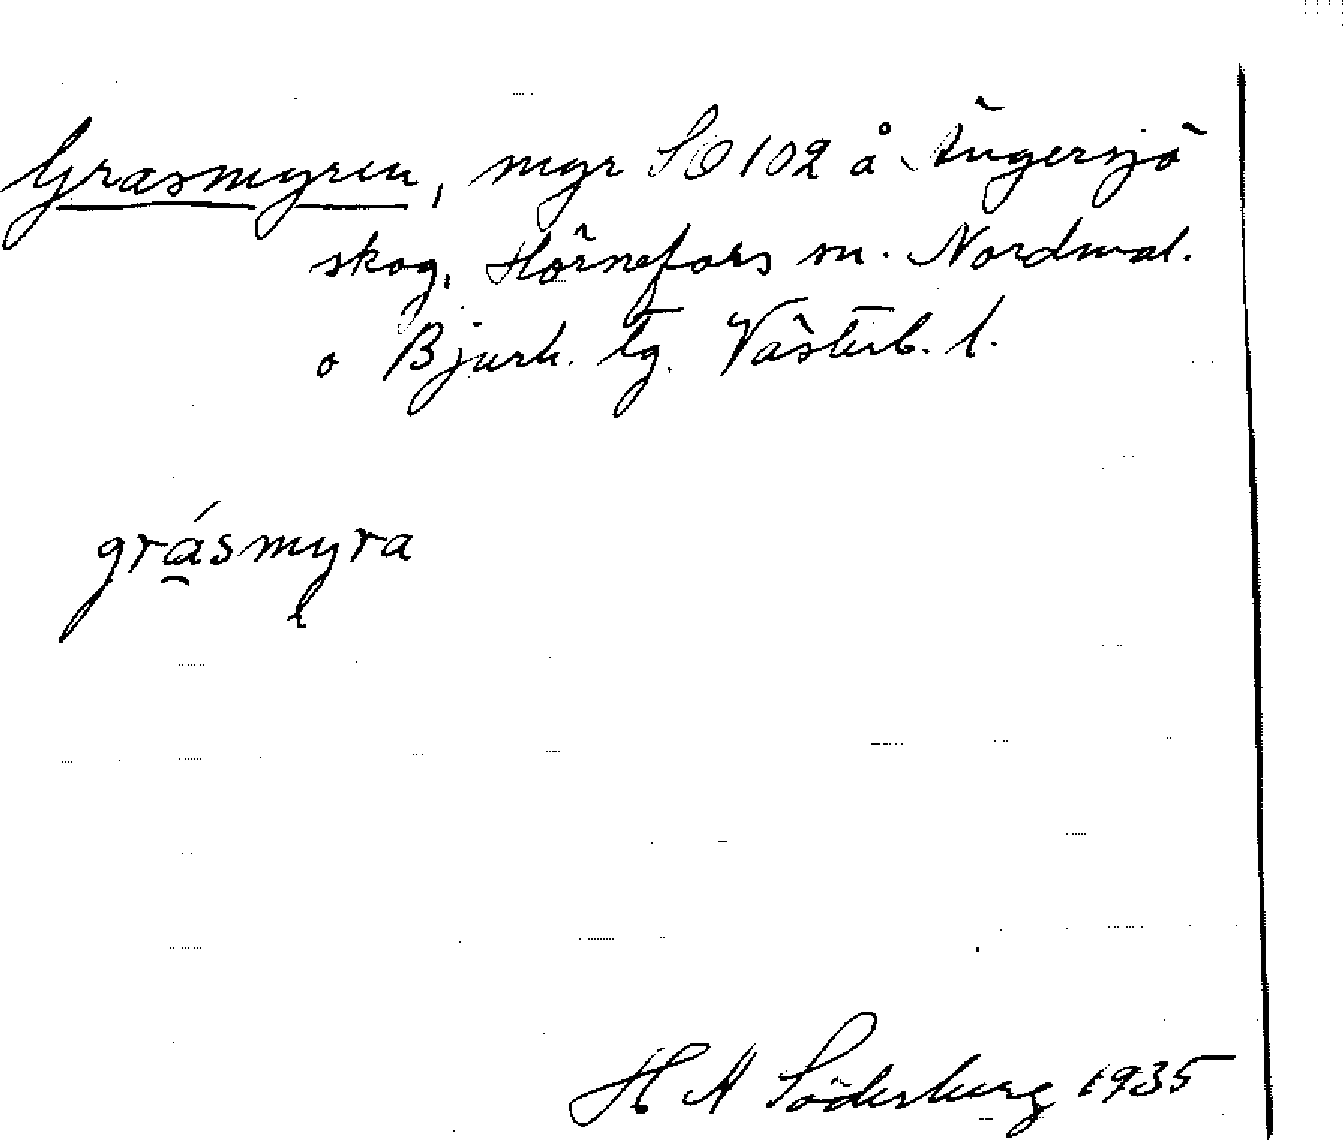 Grasmyren, mgr SO 102 å Ängersjö
skog, Hörnefors sn. Nordmal.
o Bjurh. tg. Västerb. l.
grásmyra
H A Söderberg 1935